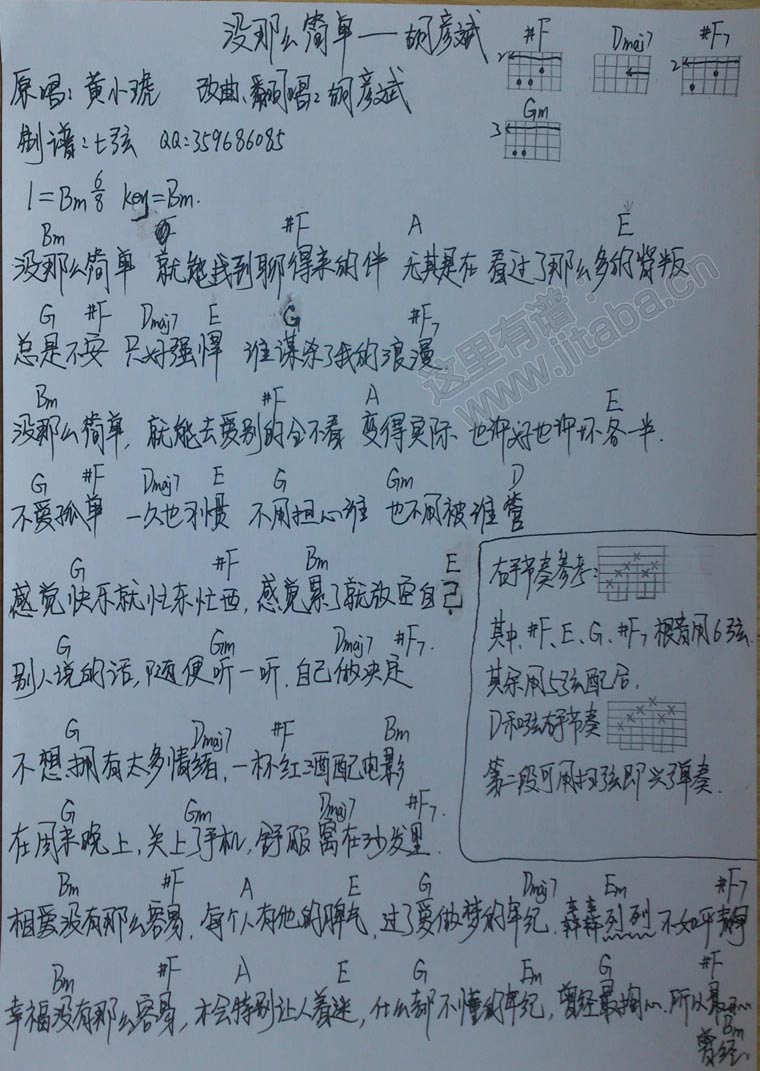 没那么简单——胡彦斌
#F Dmaj7 #F7
原唱：黄小琥 改曲、翻唱：胡彦斌
Gm
制谱：七弦 QQ:359686085
1=Bm 6/8 key=Bm.
Bm #F A E
没那么简单 就能找到聊得来的伴 尤其是在 看过了那么多的背叛
G #F Dmaj7 E G #F7
总是不安 只好强悍 谁谋杀了我的浪漫
Bm #F A E
没那么简单，就能去爱别的全不看 变得实际 也许好也许坏各一半.
G #F Dmaj7 E G Gm D
不爱孤单 一久也习惯 不用担心谁 也不用被谁管
G #F Bm E
感觉快乐就忙东忙西，感觉累了就放空自己
G Gm Dmaj7 #F7.
别人说的话，随便听一听，自己做决定
G Dmaj7 #F Bm
不想拥有太多情绪，一杯红酒配电影
G Gm Dmaj7 #F7.
在周末晚上，关上了手机，舒服窝在沙发里.
右手节奏参考：
其中，#F、E、G、#F7 根音用6弦.
其余用5弦配合.
D和弦右手节奏
第二段可用扫弦即兴弹奏.
Bm #F A E G Dmaj7 Em #F7
相爱没有那么容易，每个人有他的脾气，过了爱做梦的年纪，轰轰烈烈 不如平静
Bm #F A E G Em G #F
幸福没有那么容易，才会特别让人着迷，什么都不懂的年纪，曾经最掏心，所以最开心
Bm
曾经.
这里有谱
www.jitaba.cn